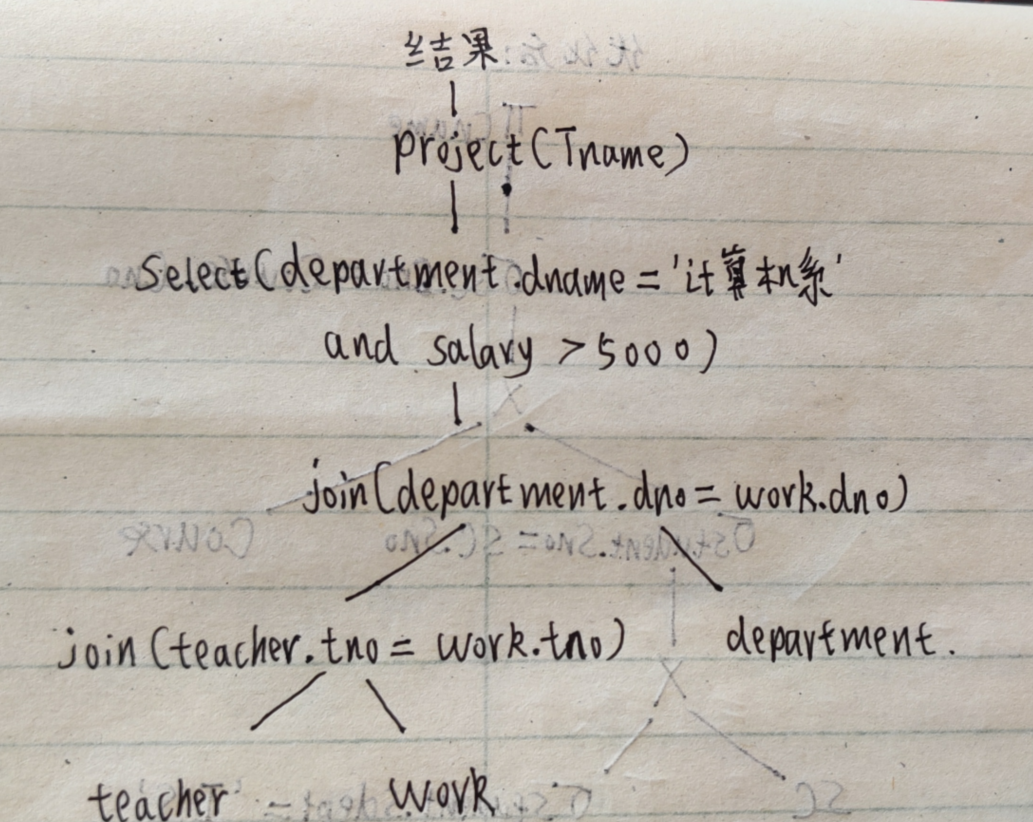 结果
project(Tname)
Select(department.dname='计算机系'
and salary >5000)
join(department.dno=work.dno)
join(teacher.tno=work.tno) department.
teacher work